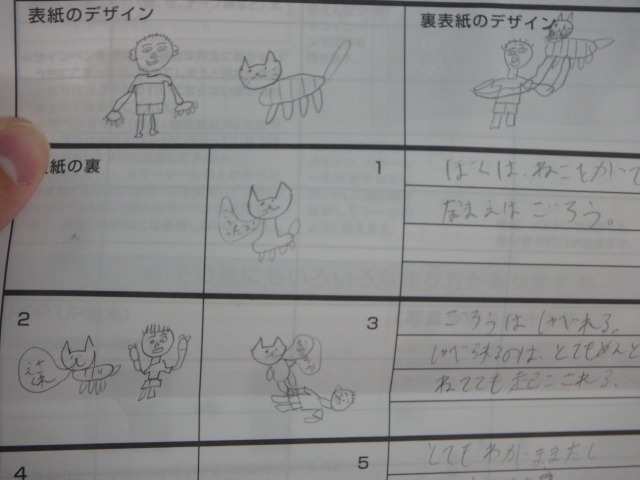 表紙のデザイン
裏表紙のデザイン
紙の裏
1
ぼくは、ねこをかって
なまえは ごろう。
2
3
ごろうは しゃべれる。
しゃべられるのは、とてもめんど
ねてても起こされる、
4
5
とてもわがままだし